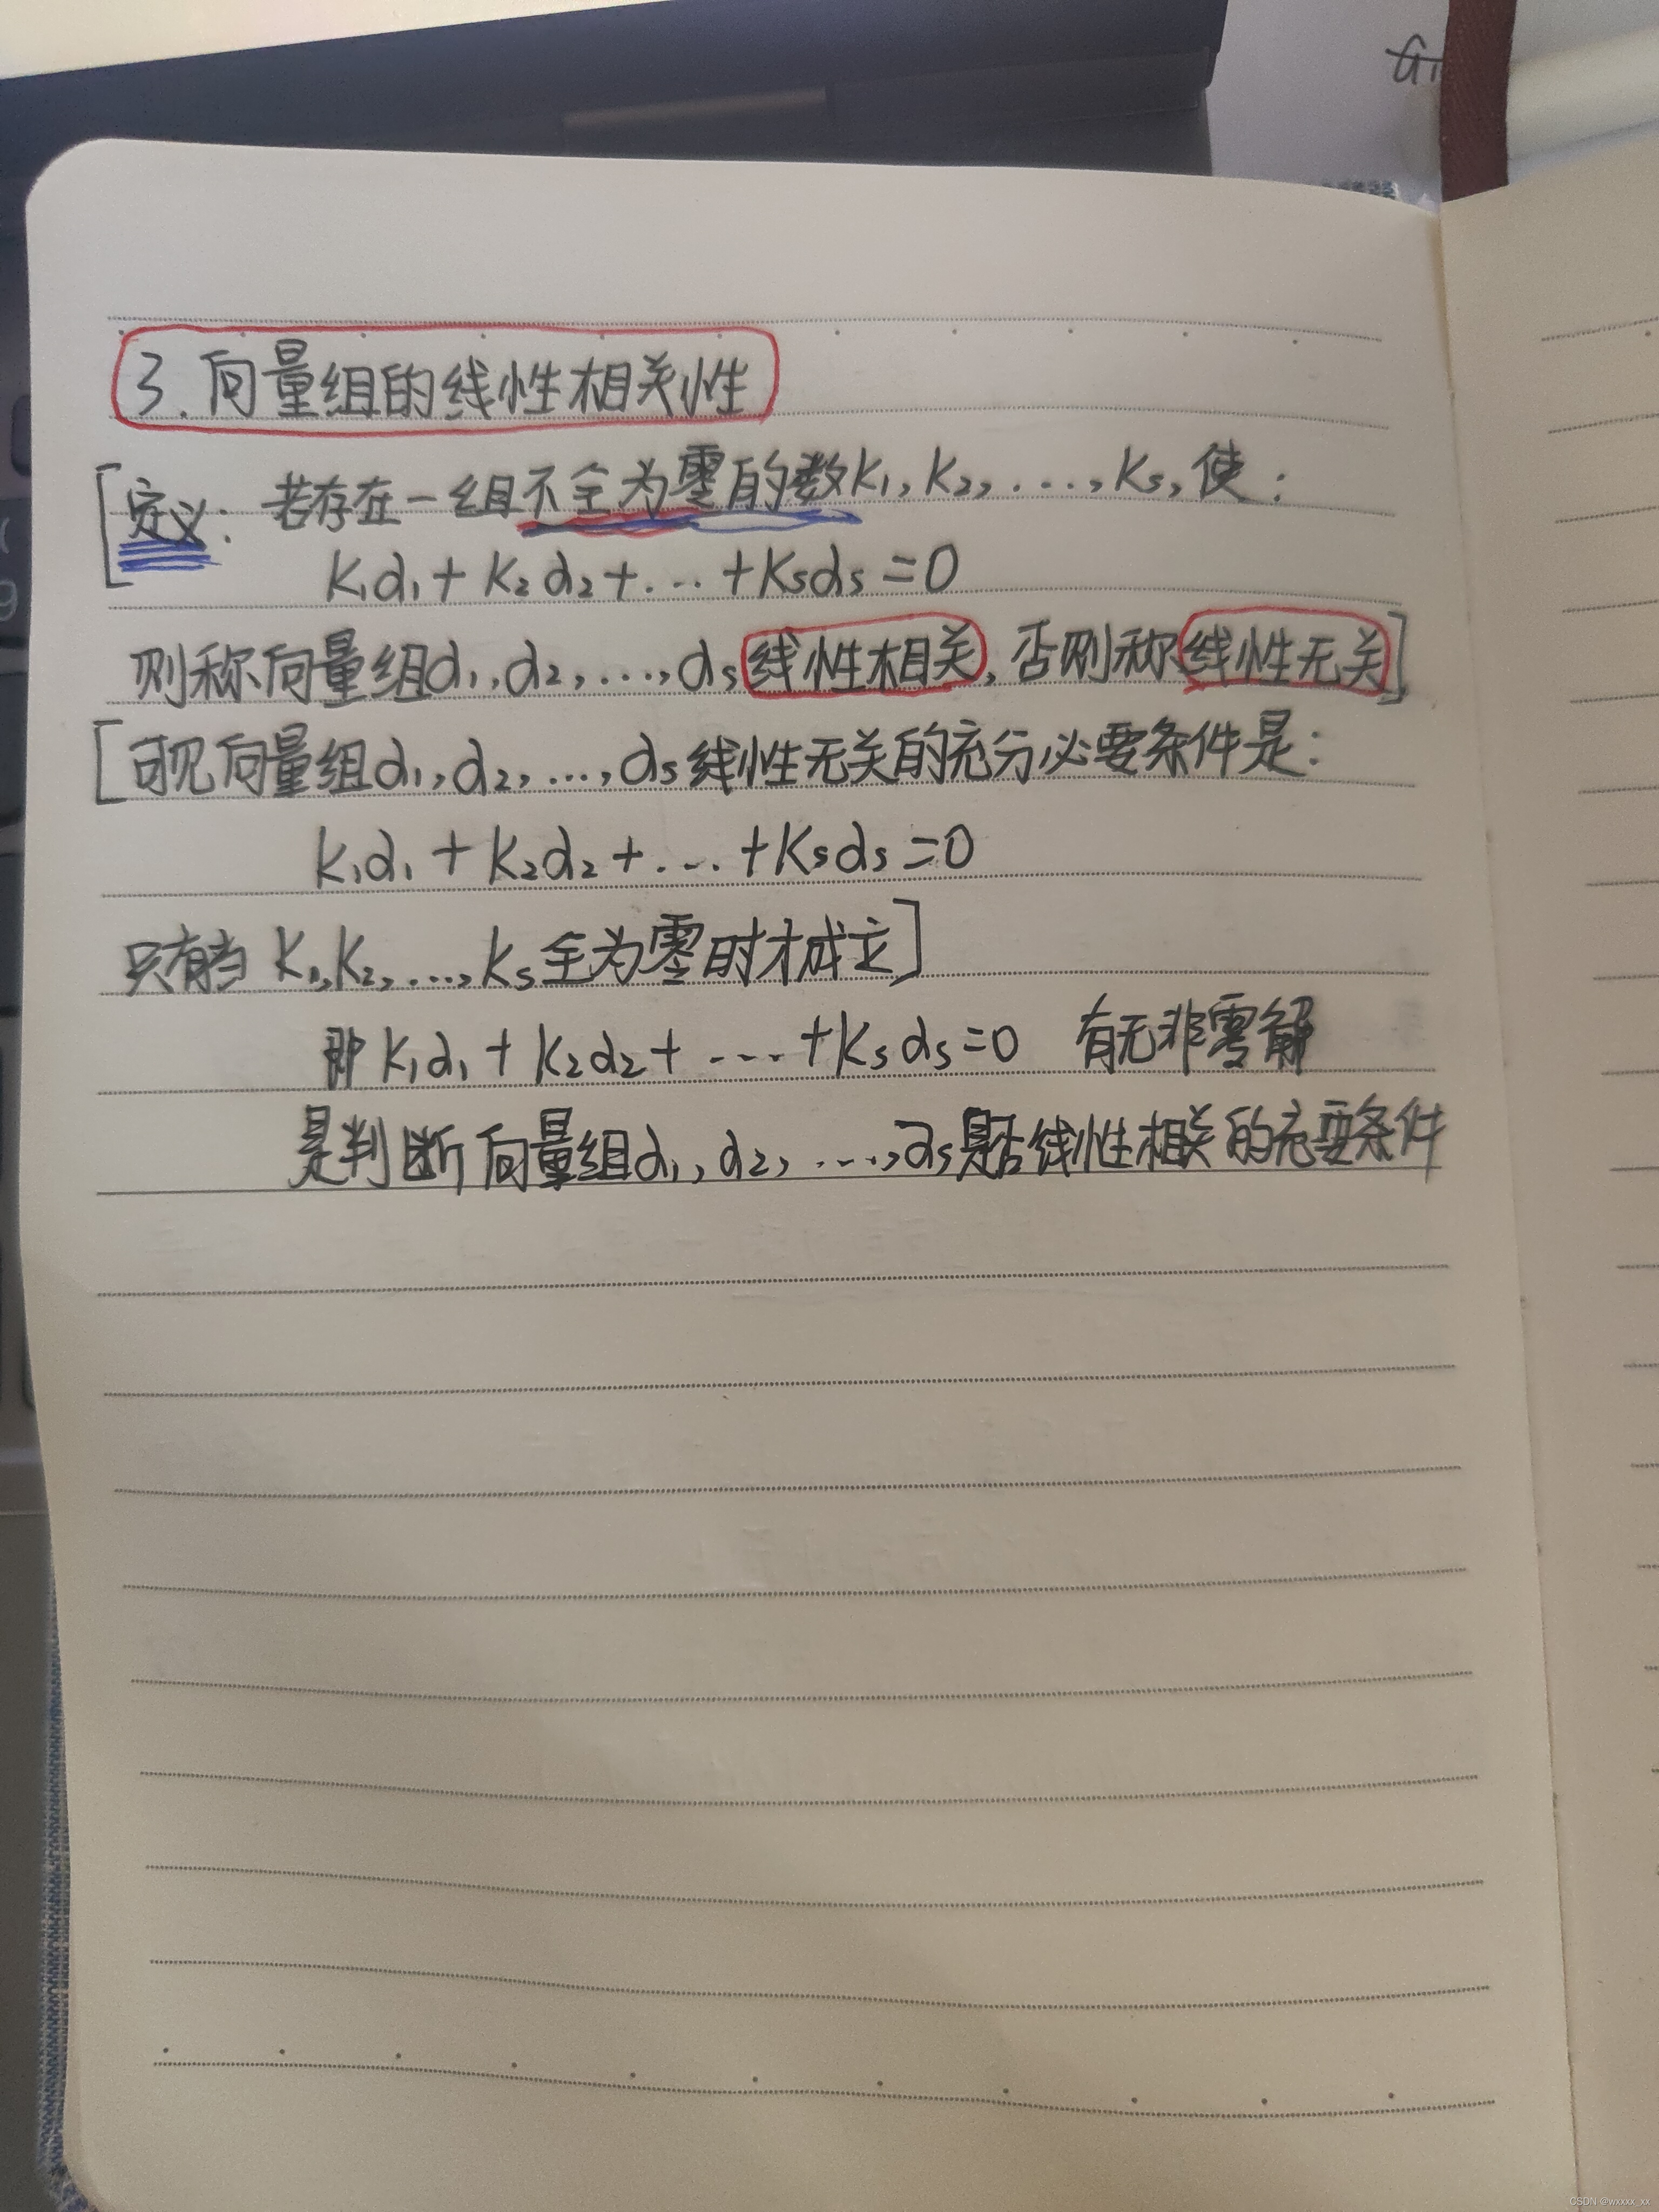 3.向量组的线性相关性
[定义:若存在一组不全为零的数K₁,K₂,...,Ks,使:
K₁α₁+K₂α₂+...+Ksαs=0
则称向量组α₁,α₂,...,αs线性相关,否则称线性无关]
[可见向量组α₁,α₂,...,αs线性无关的充分必要条件是:
K₁α₁+K₂α₂+...+Ksαs=0
只有当K₁,K₂,...,Ks全为零时才成立]
即K₁α₁+K₂α₂+...+Ksαs=0 有无非零解
是判断向量组α₁,α₂,...,αs是否线性相关的充要条件
9
CSDN @wxxxx_xx